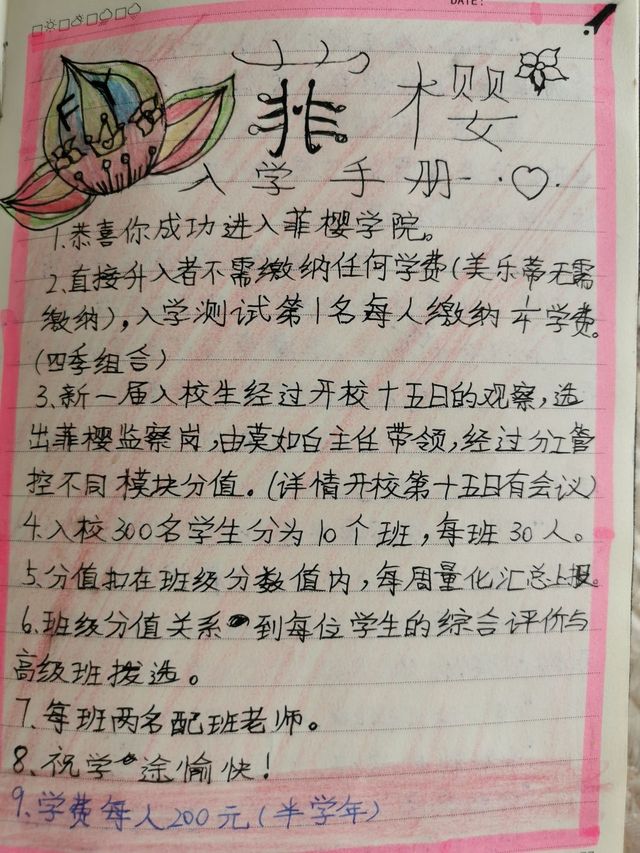 DATE:
FY
菲樱
入学手册
1.恭喜你成功进入菲樱学院。
2.直接升入者不需缴纳任何学费(美乐蒂无需
缴纳),入学测试第1名每人缴纳1/4学费。
(四季组合)
3.新一届入校生经过开校十五日的观察,选
出菲樱监察岗,由莫如白主任带领,经过分工管
控不同模块分值。(详情开校第十五日有会议)
4.入校300名学生分为10个班,每班30人。
5.分值扣在班级分数值内,每周量化汇总上报。
6.班级分值关系到每位学生的综合评价与
高级班拨选。
7.每班两名配班老师。
8、祝学途愉快!
9.学费每人200元(半学年)